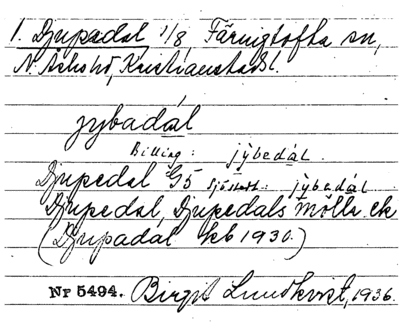 1. Djupadal 1/8 Färingtofta sn,
N. Åsbo hd, Kristianstads l.
jybadal
Billing: jỳbedál.
Djupedal G5 Sjöstedt: jỳbadál
Djupedal, Djupedals mölla ek
(Djupadal kb 1930.)
Nr 5494. Birgit Lundkvist, 1936.